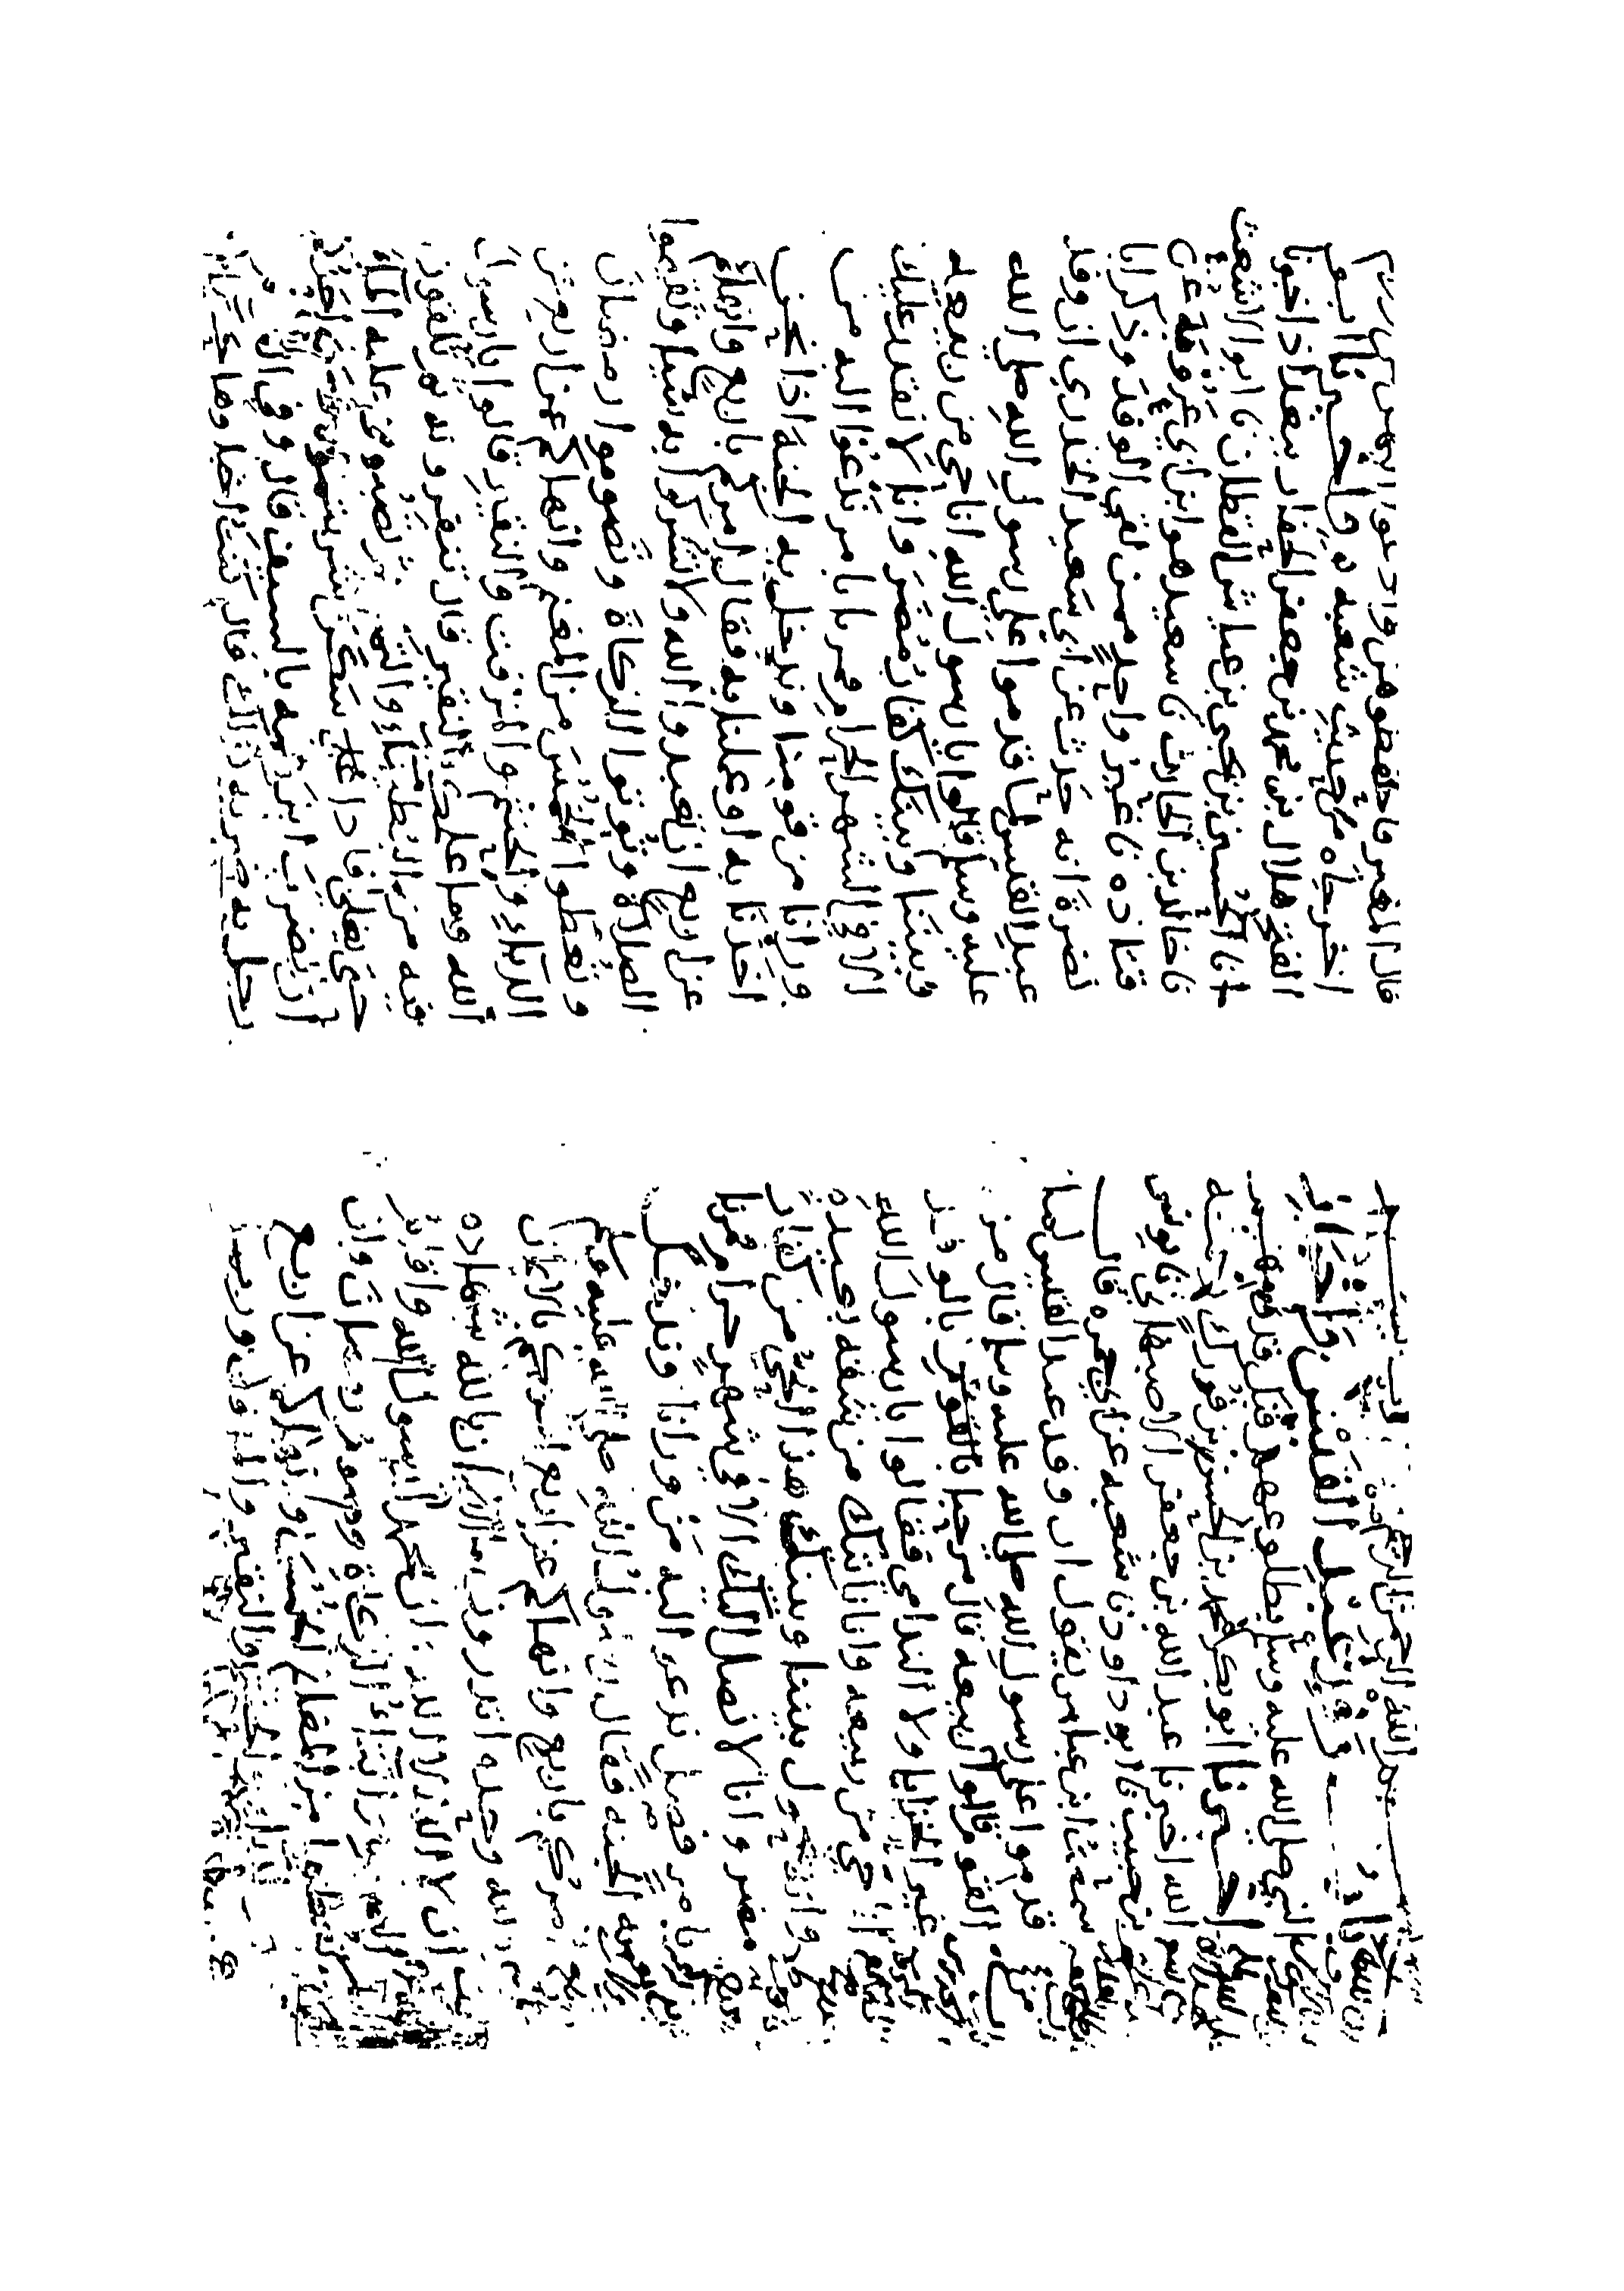 بسم الله الرحمن الرحيم
وفد عبد القيس واخبار
النبي صلى الله عليه وسلم بطلوعهم قبل قدومهم
ابو بكر محمد بن الحسن بن فورك رحمه
الله اخبرنا عبد الله بن جعفر الاصبهاني نا يونس
بن حبيب نا ابو داود نا شعبه عن ابي جمره قال
سمعت ابن عباس يقول ان وفد عبد القيس لما
قدموا على رسول الله صلى الله عليه وسلم قال من
القوم قالوا ربيعه قال مرحبا بالقوم بالوفد
غير الخزايا ولا الندامى فقالوا يا رسول الله
انا حي من ربيعه وانا ناتيك من شقه بعيده
وانه يحول بيننا وبينك هذا الحي من كفار
مضر وانا لا نصل اليك الا في شهر حرام فمرنا
بامر فصل ندعو اليه من وراءنا وندخل
به الجنه فقال رسول الله صلى الله عليه وسلم
امركم باربع وانهاكم عن اربع امركم بالايمان
بالله وحده اتدرون ما الايمان بالله شهاده
ان لا اله الا الله وان محمدا رسول الله واقام
وايتاء الزكاة وصوم رمضان وان
تعطوا من المغانم الخمس وانهاكم عن اربع
والحنتم والنقير والمزفت وربما
قال المقير فاحفظوهن وادعوا اليهن من وراءكم
اخرجاه من حديث شعبه
الفتح هلال بن محمد بن جعفر الحفار ببغداد اخبرنا
الحسين بن يحيى بن عياش القطان نا ابو الاشعث
نا خالد بن الحارث نا سعيد هو ابن ابي عروبة عن
قتاده نا غير واحد ممن لقي الوفد وذكر ابا
نضرة انه حدث عن ابي سعيد الخدري ان وفد
عبد القيس لما قدموا على رسول الله صلى الله
عليه وسلم قالوا يا رسول الله انا حي من ربيعه
وبيننا وبينك كفار مضر وانا لا نقدر عليك
الا في الشهر الحرام فمرنا بامر ندعو اليه من
وراءنا من قومنا وندخل به الجنة اذا نحن
اخذنا به او عملنا به فقال امركم باربع وانهاكم
عن اربع ان تعبدوا الله ولا تشركوا به شيا وتقيموا
الصلاة وتوتوا الزكاة وتصوموا رمضان
وتعطوا الخمس من المغنم وانهاكم عن اربع عن
الدباء والحنتم والمزفت والنقير قالوا يا رسول
الله وما علمك بالنقير قال تنقرونه ثم تلقون
فيه من القطيعاء والتمر ثم تصبون عليه الماء
حتى يغلي فاذا سكن شربتموه
ان يضرب ابن عمه بالسيف قال وفي القوم
رجل به ضربه كذلك قال كنت اخباوها حياء